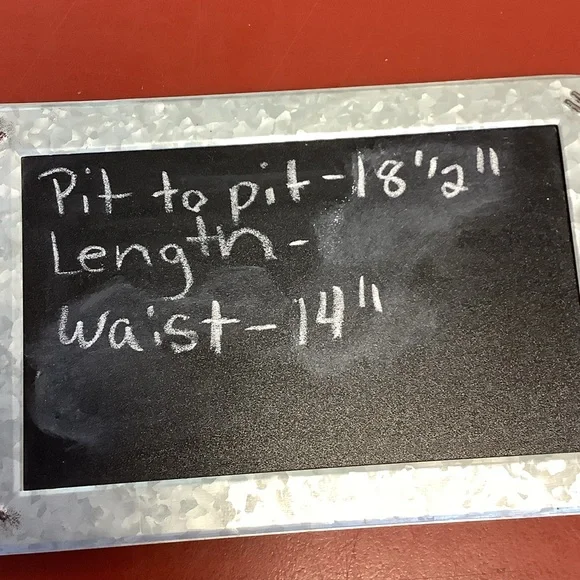 Pit to pit - 18 1/2"
Length -
waist - 14"